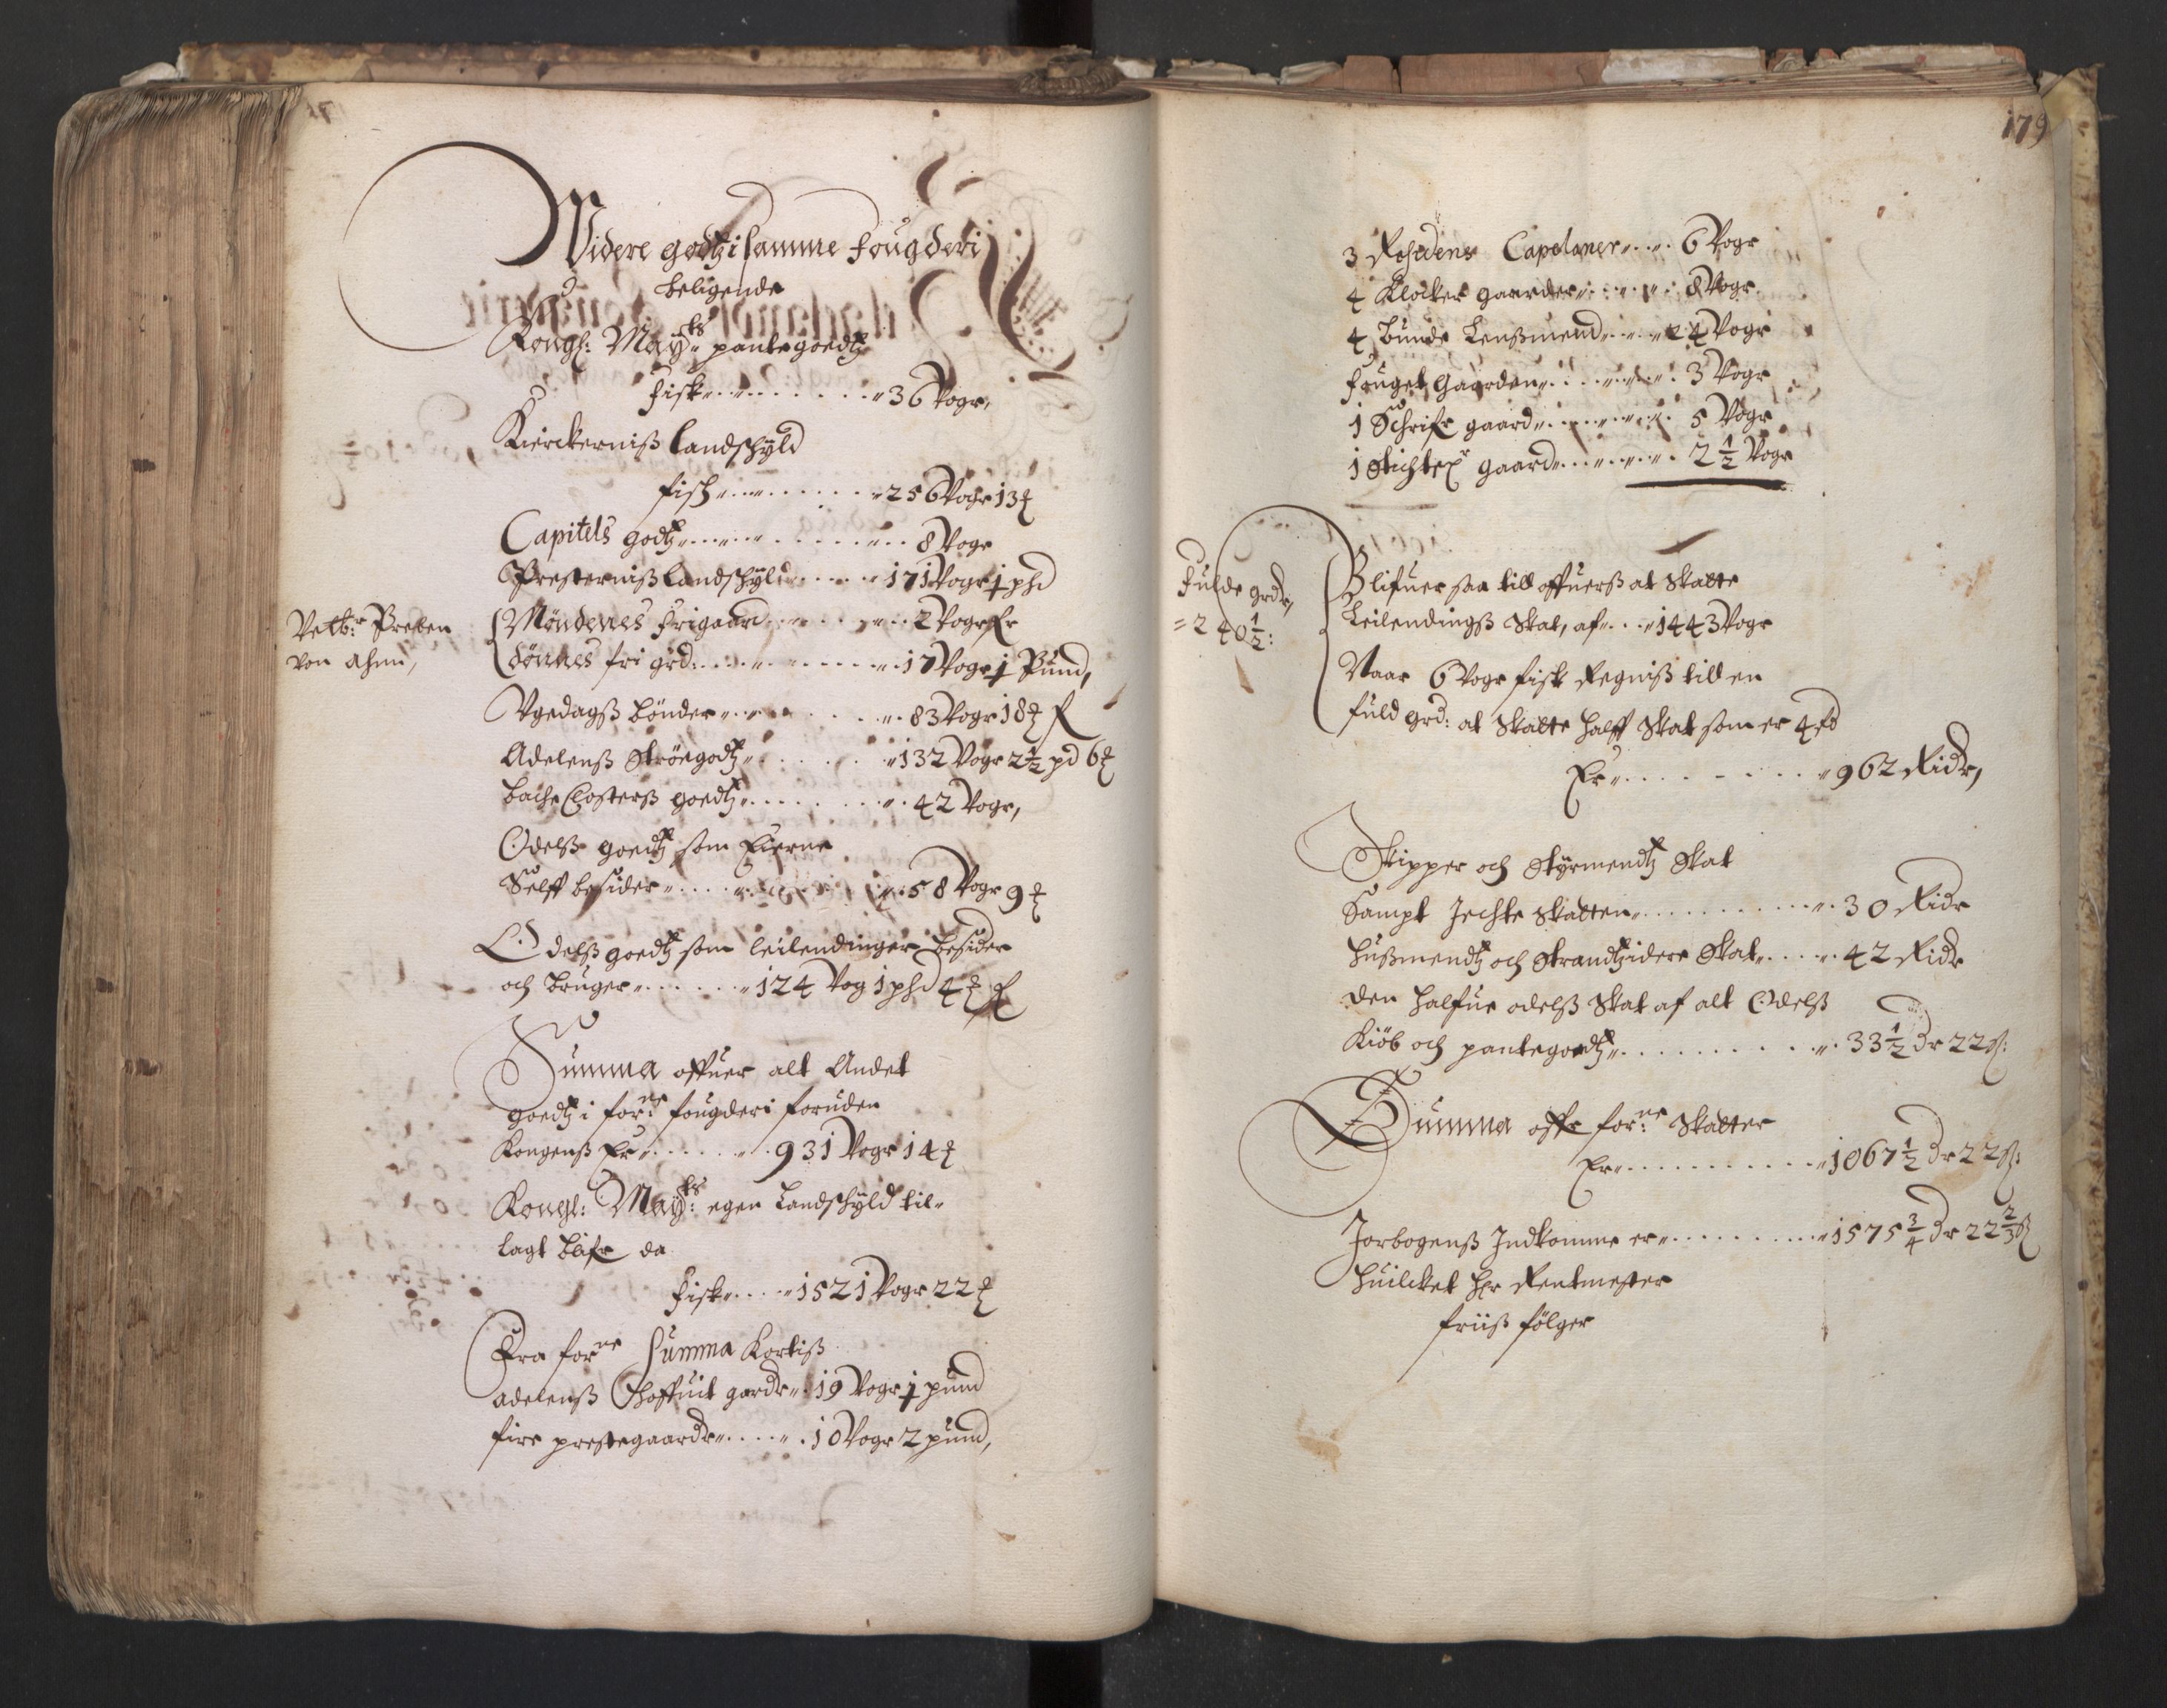 Videre godtz i samme fougderi
beligende
Kongl: Mayts pantegoedtz
fisk 36 Voger,
Kierckerniss Landschyld
fisk 256 Voger 13
Capitels godtz 8 Voger
Presterniss Landschyld 171 Voger 1 phd
Velb: Preben
von Ahnn,
Möndenes frigaard 2 Voger
Dönnes fri grd: 17 Voger 1 Pund,
Vgedagss bönder 83 Voger 18
Adelenss Ströegodtz 132 Voger 2½ pd 6
bache Closterss goedtz 42 Voger,
Odelss goedtz som Eierne
Selff besider 58 Voger 9
Odelss goedtz som leilendinger besider
och bruger 124 Vog 1 phd 4
Summa offuer alt Andet
goedtz i forne: fougderi foruden
Kongenss Er 931 Voger 14
Kongl: Mayts: egen Landschyld til-
lagt blifr da
fisk 1521 Voger 22
Fra forne Summa Kortiss
adelenss Hoffuit gardr 19 Voger 1 pund
fire prestegaardr 10 Voger 2 pund,
179
3 Residens Capelaner 6 Voger
4 Klocker gaarder 8 Voger
4 Bunde Lenssmend 24 Voger
fouget Gaarden 3 Voger
1 Schrifr gaard 5 Voger
1 Stichtsr gaard 2½ Voger
fulde grdr,
=240½:
Blifuer saa till offuerss at Skatte
Leilendingss Skat, af 1443 Voger
Naar 6 Voger fisk Regniss till en
fuld grd: at Skatte halff Skat som er 4
Er 962 Ridr,
Skipper och Styrmendtz Skat
Sampt Jechte Skatten 30 Ridr
Hussmendtz och Strandtzidere Skat 42 Ridr
Den halfue odelss Skat af alt Odelss
Kiöb och pantegoedtz 33½ Dr 22 s:
Summa offr forne: Skatter
Er 1067½ Dr 22 s:
Jorbogenss Indkomme er 1575¾ Dr 22⅔ s
Huilcket Hr Rentmester
friiss fölger